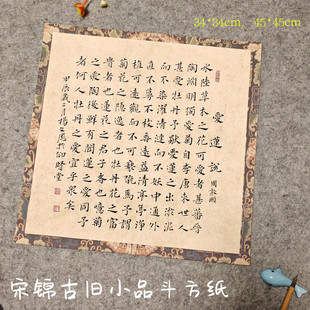 34*34cm、45*45cm
愛蓮說 周敦頤
水陸草木之花可愛者甚蕃晉
陶淵明獨愛菊自李唐來世人
甚愛牡丹予獨愛蓮之出淤泥
而不染濯清漣而不妖中通外
直不蔓不枝香遠益清亭亭淨
植可遠觀而不可褻玩焉予謂
菊花之隱逸者也牡丹花之富
貴者也蓮花之君子者也噫菊
之愛陶後鮮有聞蓮之愛同予
者何人牡丹之愛宜乎眾矣
甲辰歲
宋锦古旧小品斗方纸